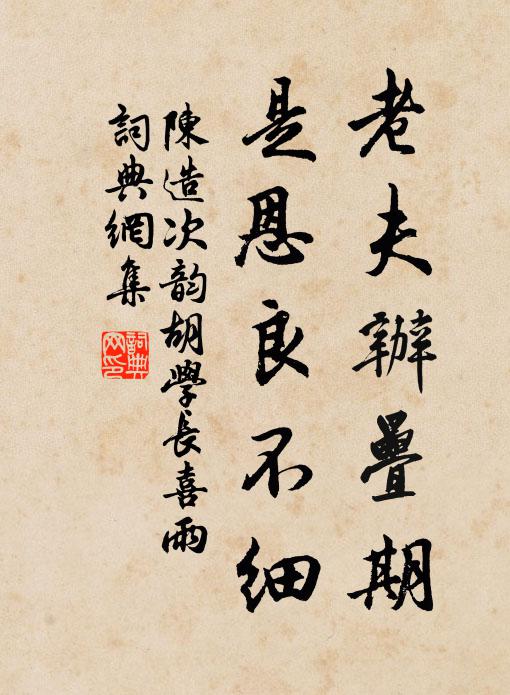 老夫辦疊期
是恩良不細
陳造次韵胡學長喜雨
詞典網集
詞典網印